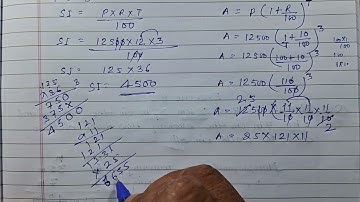 SI = P x R x T / 100
SI = 12500 x 12 x 3 / 100
SI = 125 x 36
SI: 4500
125
x 36
750
375x
4500
121
x 11
121
121
1331
25
6655
A = P(1 + R/100)^3
A = 12500(1 + 10/100)^3
A = 12500(110/100)^3
A = 12500 x 11/10 x 11/10 x 11/10
A = 25 x 121 x 11